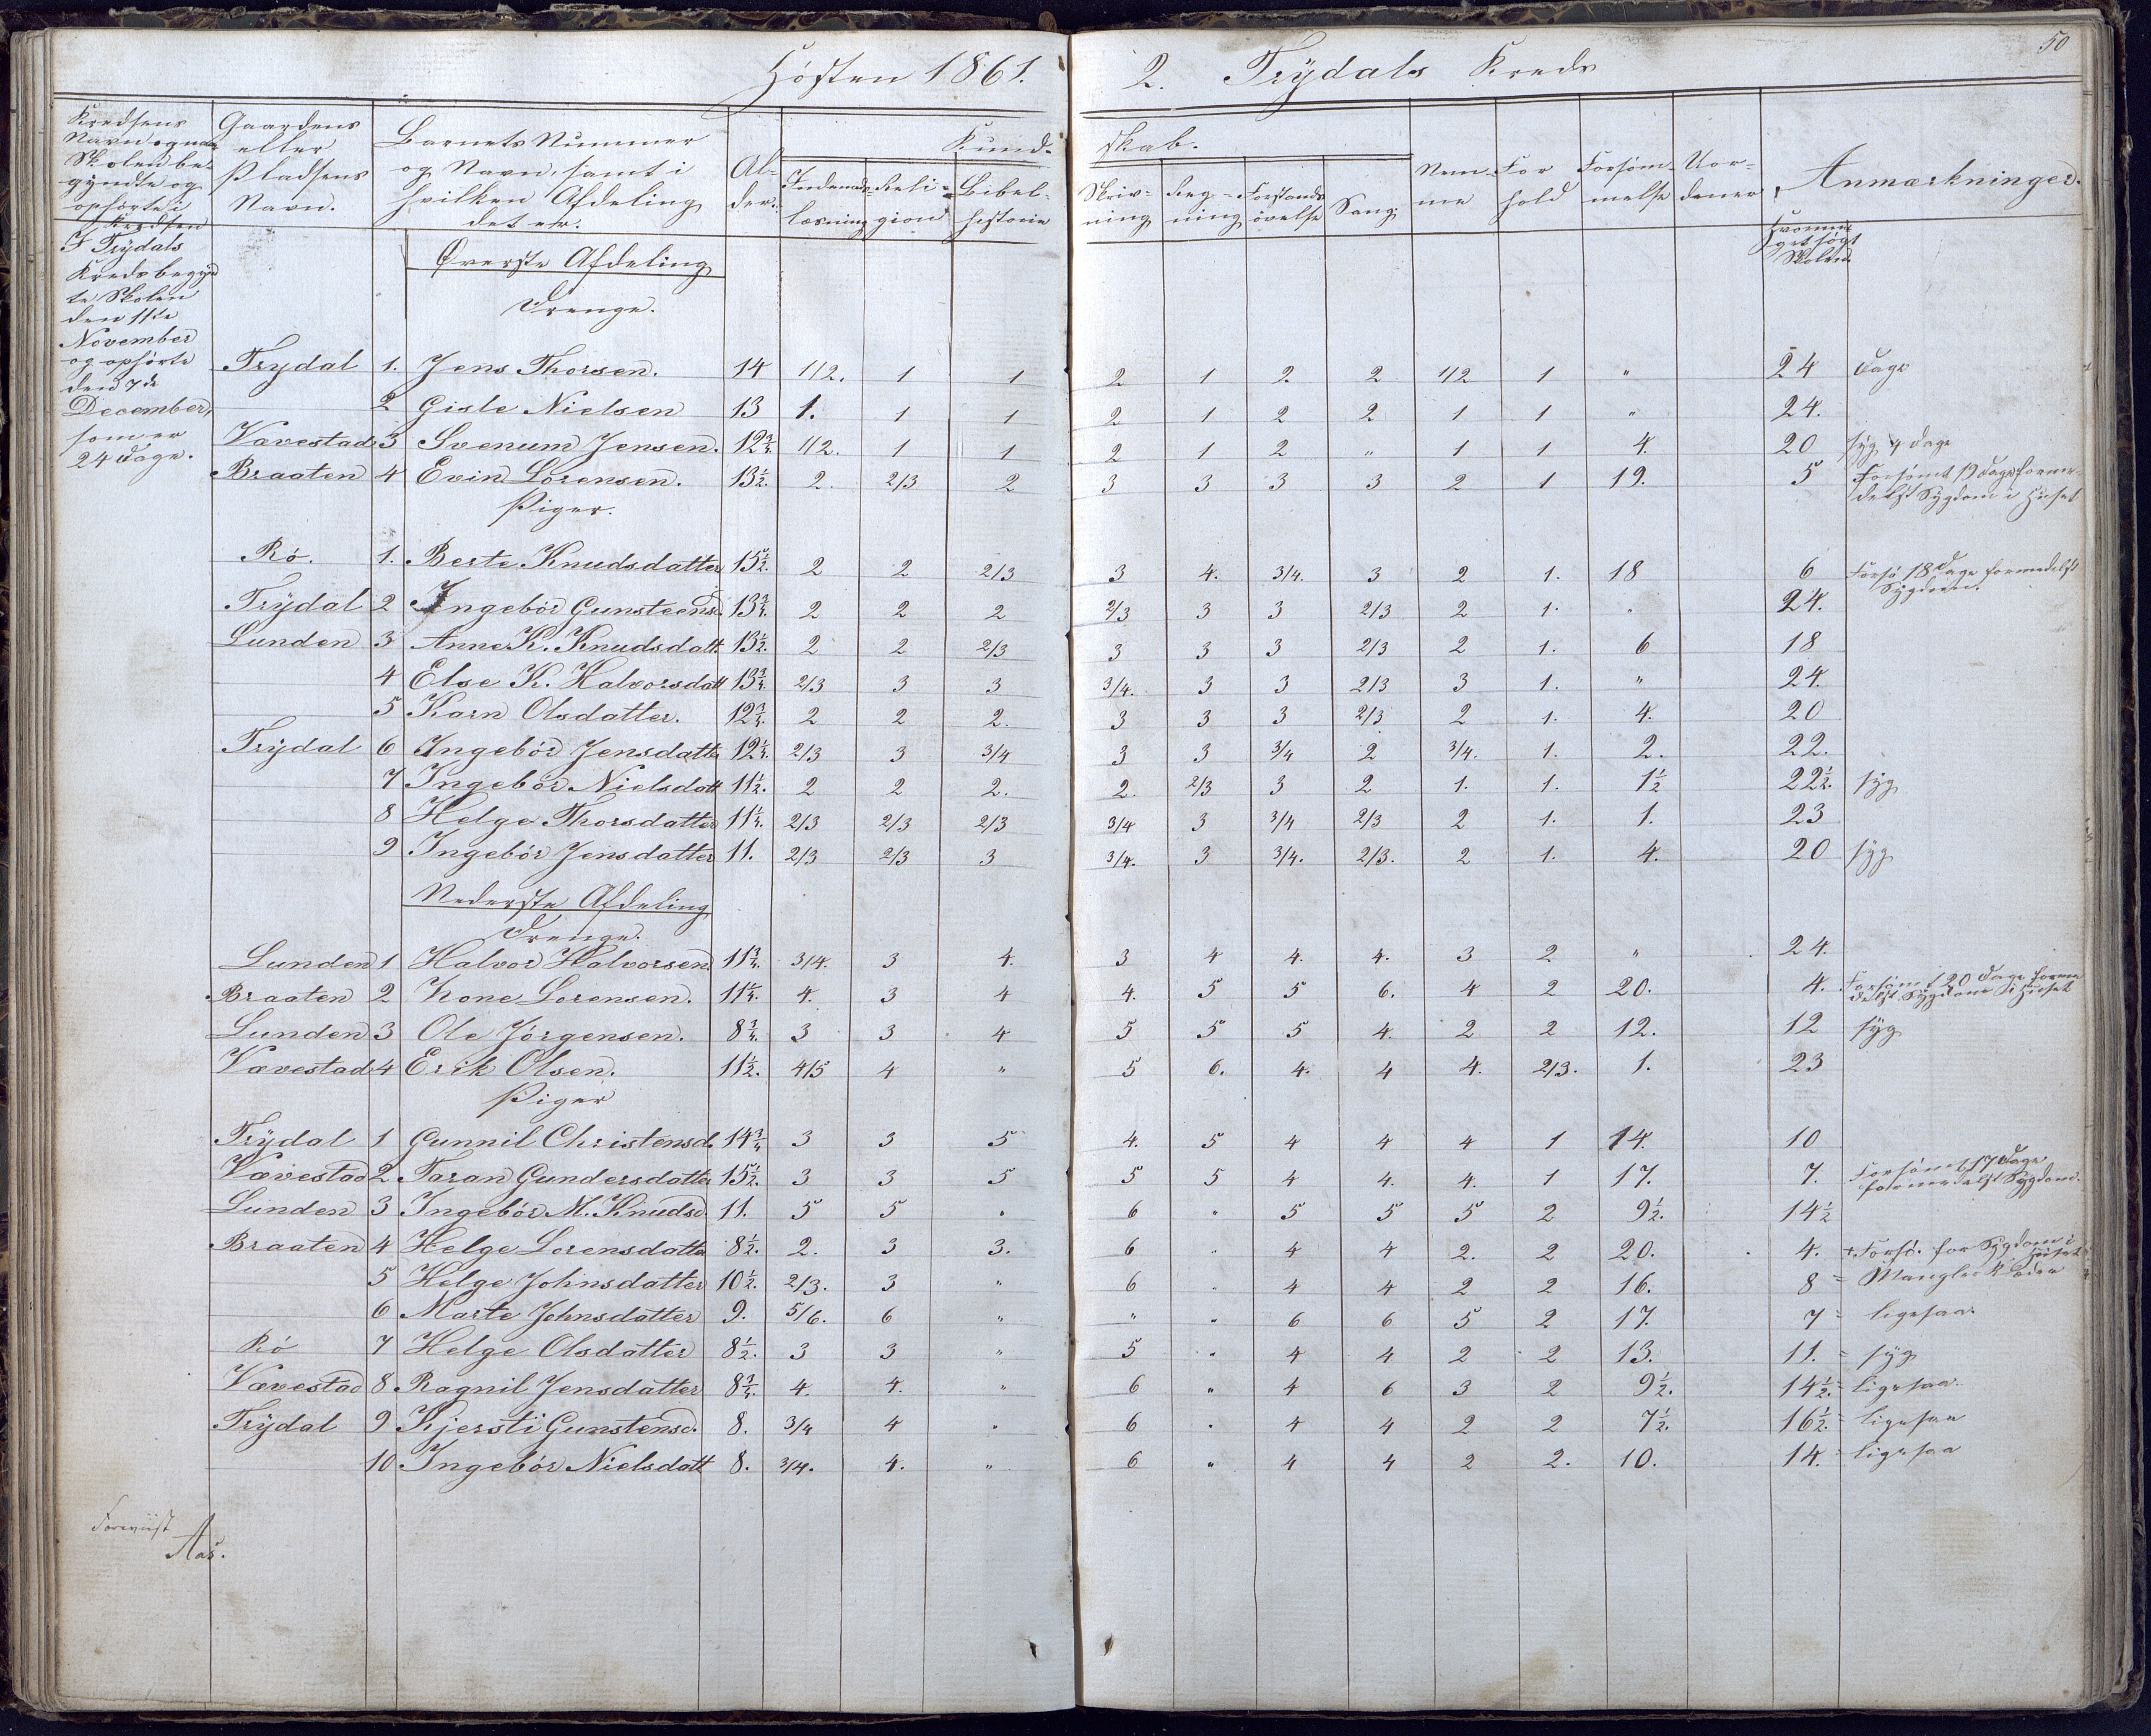 Hösten 1861. 2. Trÿdals Kreds 50
Kredsens Navn og naar Skolen begyndte og ophörte i Kredsen
Gaardens eller Pladsens Navn.
Barnets Nummer og Navn, samt i hvilken Afdeling det er.
Alder.
Kundskab.
Indenadslæsning
Religion
Bibelhistorie
Skrivning
Regning
Forstandsövelse
Sang.
Nemme
Forhold
Forsömmelse
Uordener
Anmærkninger.
Hvormeget sögt Skolen
I Trÿdals
Kreds begyn
te Skolen
den 11te
November
og ophörte
den 7de
December,
som er
24 Dage.
Överste Afdeling
Drenge.
Trydal 1. Jens Thorsen. 14 1/2. 1 1 2 1 2. 2 1/2 1 " 24 Dage
2 Gisle Nielsen 13 1. 1 1 2 1 2 2 1 1 " 24.
Vævestad 3 Svenum Jensen. 12 3/4. 1/2. 1 1 2 1 2 " 1 1 4. 20 syg 4 Dage
Braaten 4 Evin Lorensen. 13 1/2. 2. 2/3 2 3 3 3 3 2 1 19. 5 Forsömt 19 Dage forme-
delst Sygdom i Huset
Piger.
Rö. 1. Berte Knudsdatter 15 1/2. 2 2 2/3 3 4. 3/4. 3 2 1. 18 6 Forsö 18 Dage formedelst
Sygdom.
Trÿdal 2 Ingebör Gunsteensd. 13 3/4. 2 2 2 2/3 3 3 2/3 2 1. " 24.
Lunden 3 Anne K. Knudsdatt. 13 1/2. 2 2 2/3 3 3 3 2/3 2 1. 6 18
4 Else K. Halvorsdatt 13 3/4. 2/3 3 3 3/4. 3 3 2/3 3 1. " 24.
5 Karn Olsdatter. 12 3/4. 2 2 2. 3 3 3 2/3 2 1. 4. 20
Trÿdal 6 Ingebör Jensdatter 12 1/4. 2/3 3 3/4 3 3 3/4 2 3/4. 1. 2. 22.
7 Ingebör Nielsdatt 11 1/2. 2 2 2. 2. 2/3 3 2 1. 1. 1 1/2 22 1/2. syg
8 Helge Thorsdatter 11 1/4. 2/3 2/3 2/3 3/4 3 3/4 2/3 2 1. 1. 23
9 Ingebör Jensdatter 11. 2/3 2/3 3 3/4. 3 3/4. 2/3. 2 1. 4. 20 syg
Nederste Afdeling
Drenge.
Lunden 1 Halvor Halvorsen 11 3/4. 3/4. 3 4. 3 4 4. 4. 3 2 " 24.
Braaten 2 Lorensen. 11 1/4. 4. 3 4 4. 5 5 6. 4 2 20. 4. Forsömt 20 Dage forme
delst Sygdom i Huset
Lunden 3 Ole Jörgensen. 8 3/4. 3 3 4 5 5 5 4. 2 2 12. 12 syg
Vævestad 4 Erik Olsen. 11 1/2. 4/5 4 " 5 6. 4. 4 4. 2/3. 1. 23
Piger
Trÿdal 1 Gunnil Christensd. 14 3/4 3 3 5 4. 5 4 4 4 1 14. 10
Vævestad 2 Taran Gundersdatter 15 1/2. 3 3 5 5 5 4 4. 4. 1 17. 7. Forsömt 17 Dage
formedelst Sygdom.
Lunden 3 Ingebör M. Knudsd. 11. 5 5 " 6 " 5 5 5 2 9 1/2. 14 1/2
Braaten 4 Helge Lorensdatter 8 1/2. 2. 3 3. 6 " 4 4 2. 2 20. 4. + Forsö. for Sygdom i
Huset
5 Helge Johnsdatter 10 1/2. 2/3. 3 " 6 " 4 4 2 2 16. 8 = Mangler Klæder
6 Marte Johnsdatter 9. 5/6. 6 " " " 6 6 5 2 17. 7 = ligesaa.
Rö 7 Helge Olsdatter 8 1/2. 3 3 " 5 " 4 4 2 2 13. 11. = syg
Vævestad 8 Ragnil Jensdatter 8 3/4. 4. 4. " 6 " 4 6 3 2 9 1/2. 14 1/2. = ligesaa.
Trÿdal 9 Kjersti Gunstensd. 8. 3/4 4 " 6 " 4 4 2 2 7 1/2. 16 1/2. = ligesaa
10 Ingebör Nielsdatt 8. 3/4. 4. " 6 " 4 4 2 2. 10. 14. = ligesaa
Foreviist
Aas.